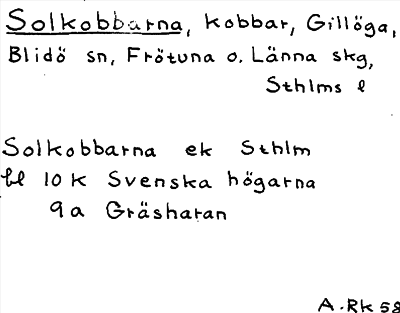 Solkobbarna, kobbar, Gillöga,
Blidö sn, Frötuna o. Länna skg,
Sthlms l
Solkobbarna ek Sthlm
bl 10 K Svenska högarna
9 a Gräsharan
A. Rk 58